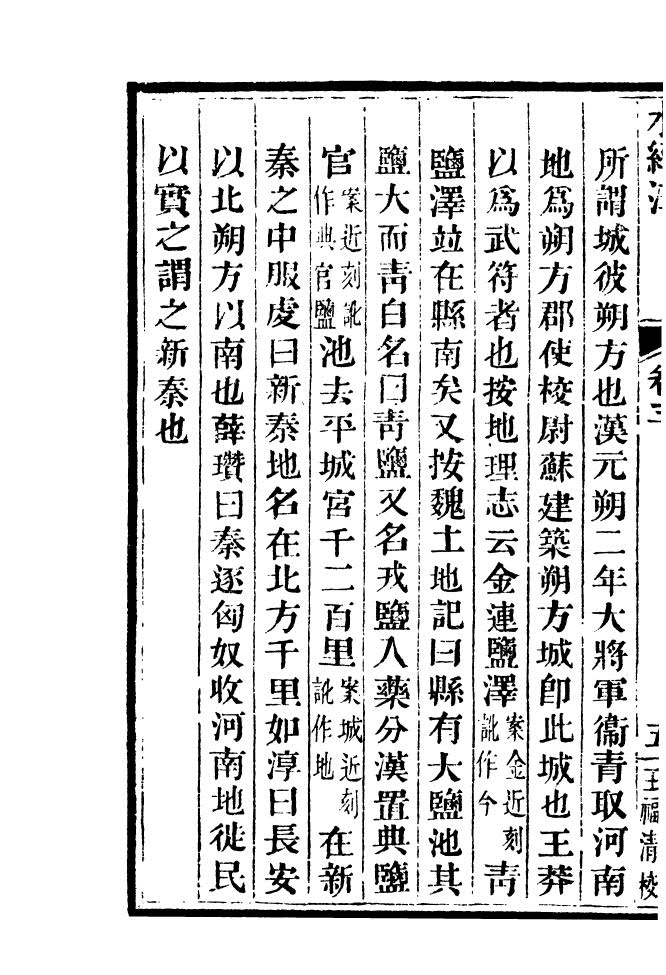 水經注　卷三　五　王福清校
所謂城彼朔方也漢元朔二年大將軍衞青取河南
地爲朔方郡使校尉蘇建築朔方城卽此城也王莽
以爲武符者也按地理志云金連鹽澤案金近刻訛作今靑
鹽澤竝在縣南矣又按魏土地記曰縣有大鹽池其
鹽大而靑白名曰靑鹽又名戎鹽入藥分漢置典鹽
官案近刻訛作典官鹽池去平城宮千二百里案城近刻訛作地在新
秦之中服虔曰新秦地名在北方千里如淳曰長安
以北朔方以南也薛瓚曰秦逐匈奴收河南地徙民
以實之謂之新秦也